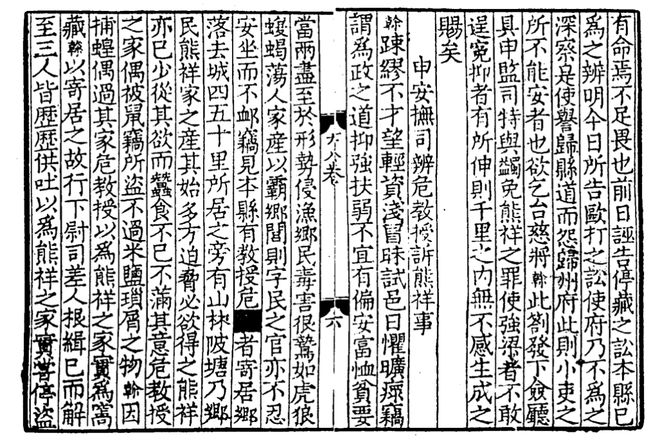 有命焉不足畏也前日誣告停藏之訟本縣已
為之辨明今日所告毆打之訟使府乃不為之
深察是使譽歸縣道而怨歸州府此則小吏之
所不能安者也欲乞台慈將榦此劄發下僉廳
具申監司特與蠲免熊祥之罪使強梁者不敢
逞寃抑者有所伸則千里之內無不感生成之
賜矣
申安撫司辨危教授訴熊祥事
榦踈繆不才望輕資淺冒昧試邑日懼曠瘝竊
謂為政之道抑強扶弱不宜有偏安富恤貧要
方公卷
六
當兩盡至於形勢侵漁鄉民毒害很鷙如虎狼
蝮蝎蕩人家産以霸鄉閭則字民之官亦不忍
安坐而不衂竊見本縣有教授危者寄居鄉
落去城四五十里所居之旁有山林陂塘乃鄉
民熊祥家之産其始多方迫脅必欲得之熊祥
亦已少從其欲而蠶食不已不滿其意危教授
之家偶被鼠竊所盜不過米鹽瑣屑之物榦因
捕蝗偶過其家危教授以為熊祥之家實為窩
藏榦以寄居之故行下尉司差人根緝已而解
至三人皆歷歷供吐以為熊祥之家實甞停盜